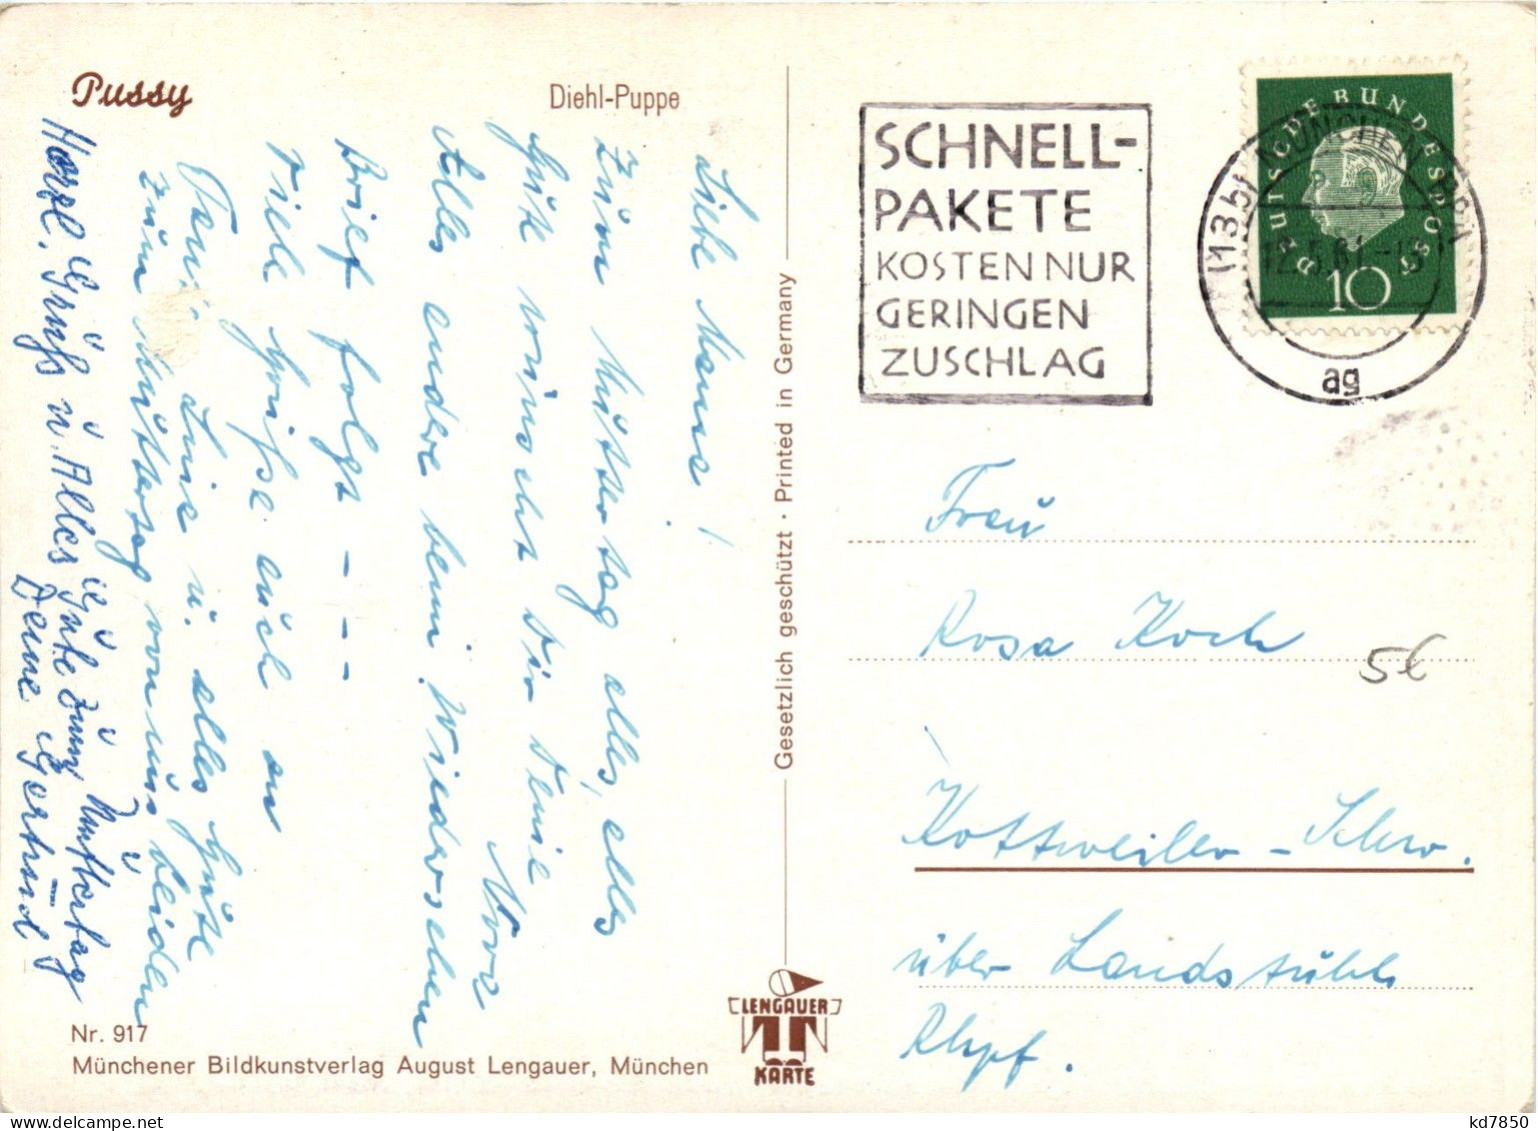 Pussy
Diehl-Puppe
Liebe Mama!
Zum Muttertag alles, alles
Gute wünscht Dir Deine
Alles andere beim Wiedersehen
Brief folgt - - -
Viele Grüße auch an
Tante u. alles Gute
zum Muttertag von uns beiden
Herzl. Grüße u. Alles Gute zum Muttertag
Deine Gertrud
Nr. 917
Münchener Bildkunstverlag August Lengauer, München
Gesetzlich geschützt · Printed in Germany
LENGAUER
KARTE
SCHNELL-
PAKETE
KOSTEN NUR
GERINGEN
ZUSCHLAG
DEUTSCHE BUNDESPOST
10
(13b) MÜNCHEN
12.5.61
ag
Frau
Rosa Koch
5€
Kottweiler-Schw.
über Landstuhl
Rhpf.
kd7850